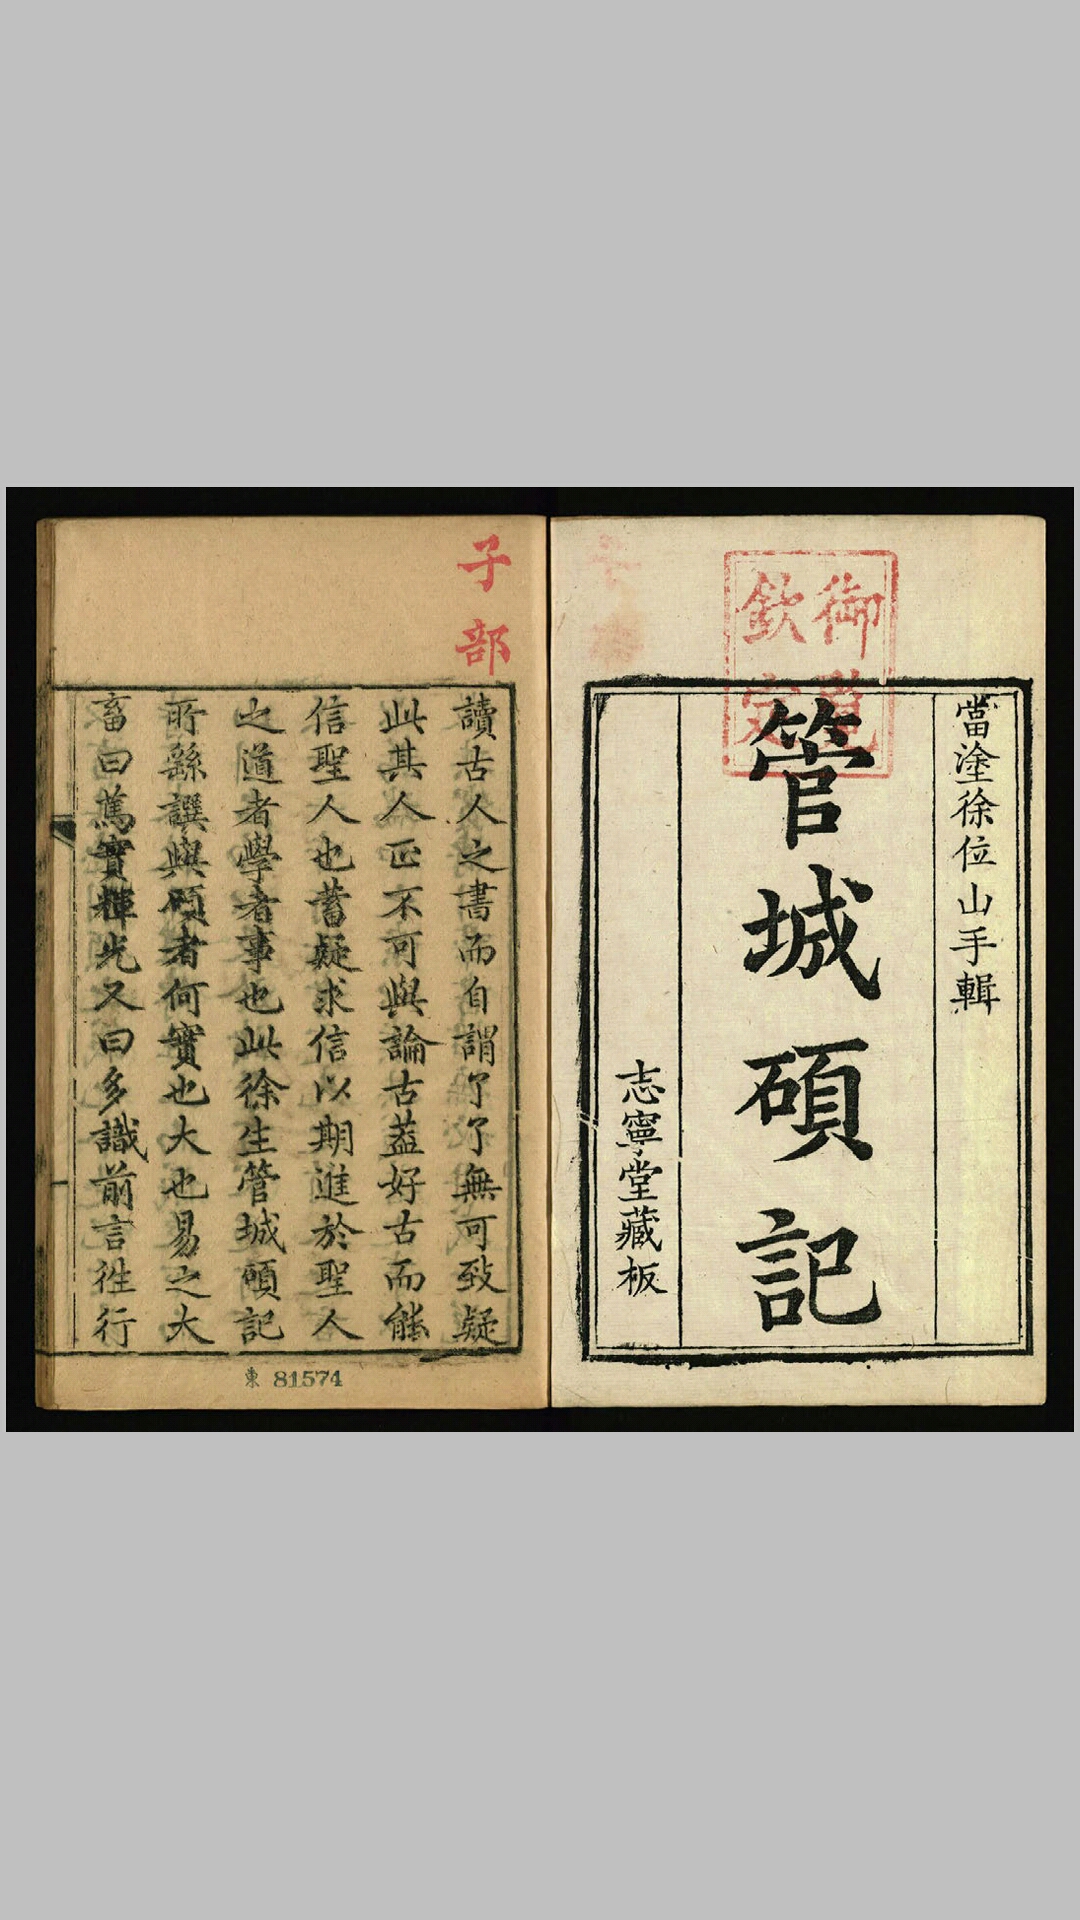 御覽
欽定
當塗徐位山手輯
管城碩記
志寧堂藏板
子部
讀古人之書而自謂了了無可致疑
此其人正不可與論古葢好古而能
信聖人也蓄疑求信以期進於聖人
之道者學者事也此徐生管城碩記
所繇譔與碩者何實也大也易之大
畜曰篤實輝光又曰多識前言徃行
東 81574